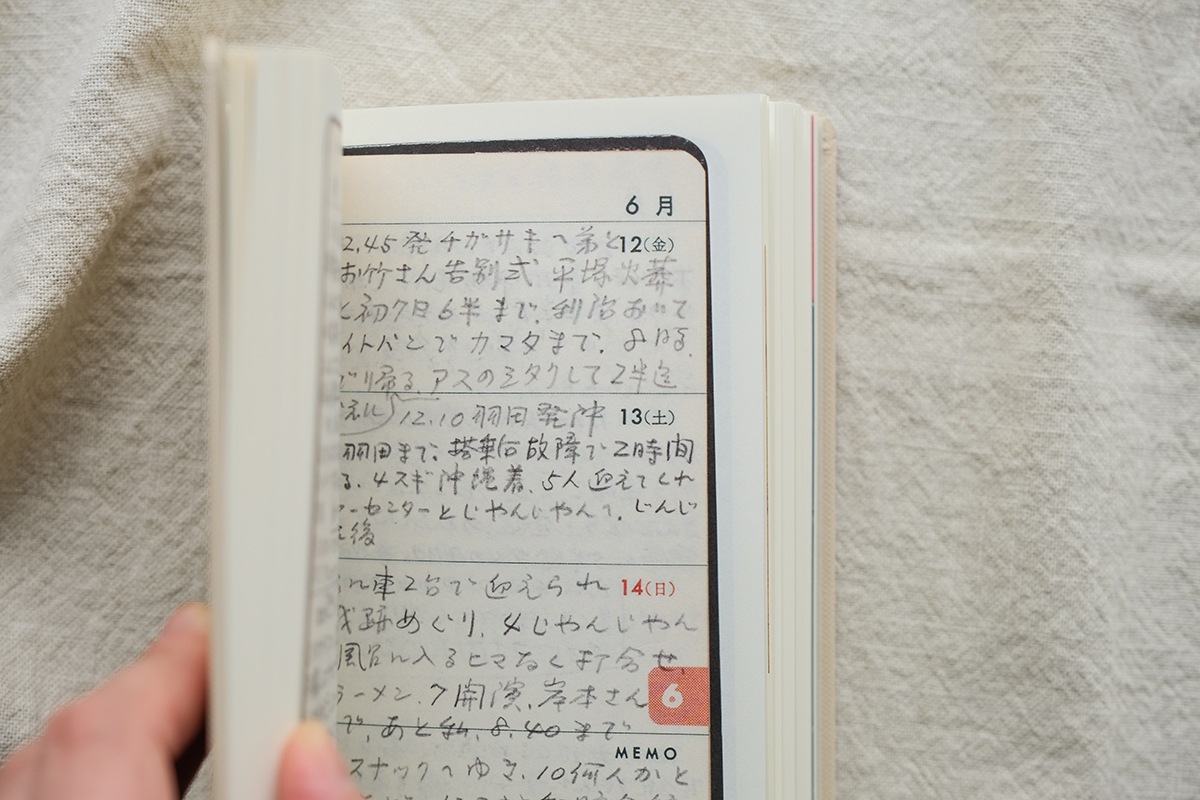 6 月
2.45 発 チガサキへ弟と 12(金)
お竹さん告別式 平塚火葬
と初7日6半まで。
イトバンでカマタまで。
帰る。アスのシタクして2半迄
12.10 羽田発沖 13(土)
羽田まで。搭乗 故障で2時間
る。4スギ沖縄着、5人迎えてくれ
ーセンターとじゃんじゃんで。じんじ
後
車2台で迎えられ 14(日)
跡めぐり。4じゃんじゃん
風呂に入るヒマなく打合せ。
ラーメン。7開演。岸本さん 6
で、あと私、8.40まで
MEMO
スナックへゆき、10何人かと